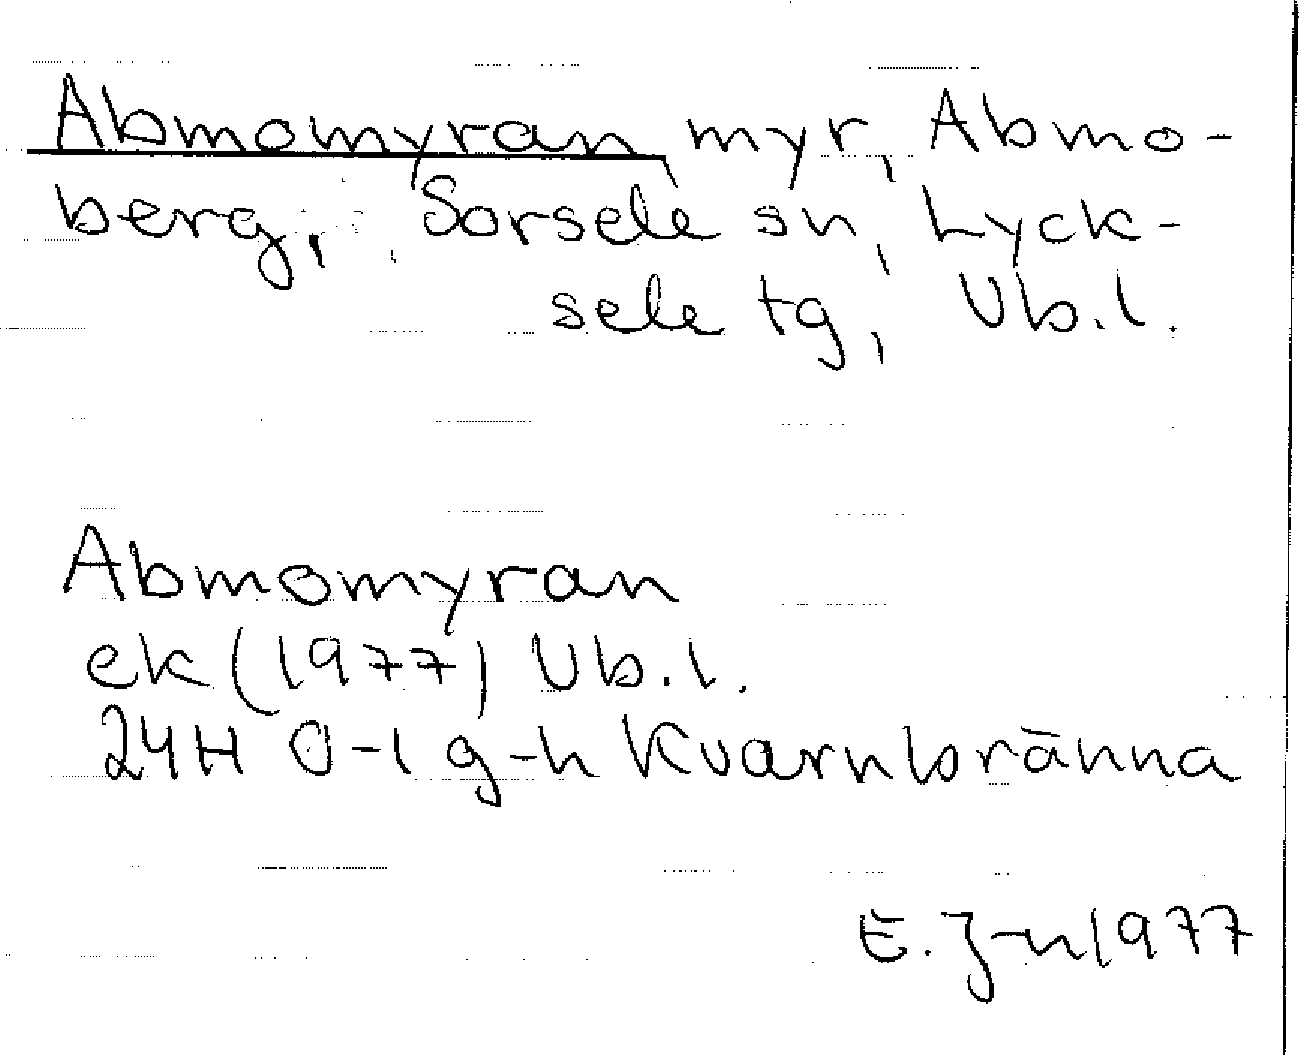 Abmomyran myr, Abmo-
berg, Sorsele sn, Lyck-
sele tg, Vb.l.
Abmomyran
ek (1977) Vb.l.
24H 0-1 g-h Kvarnbränna
E. J-n 1977